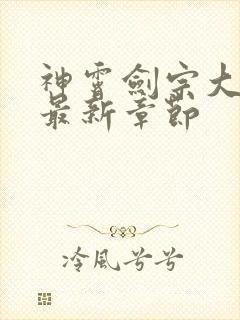 神霄劍宗大
最新章節
冷風兮兮